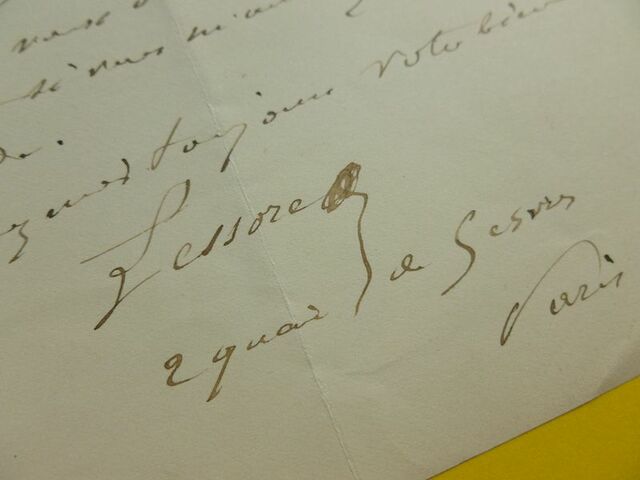 vous
si vous m'au
de.
toujours votre bien
Lessore
2 quai de Gesvres
Paris